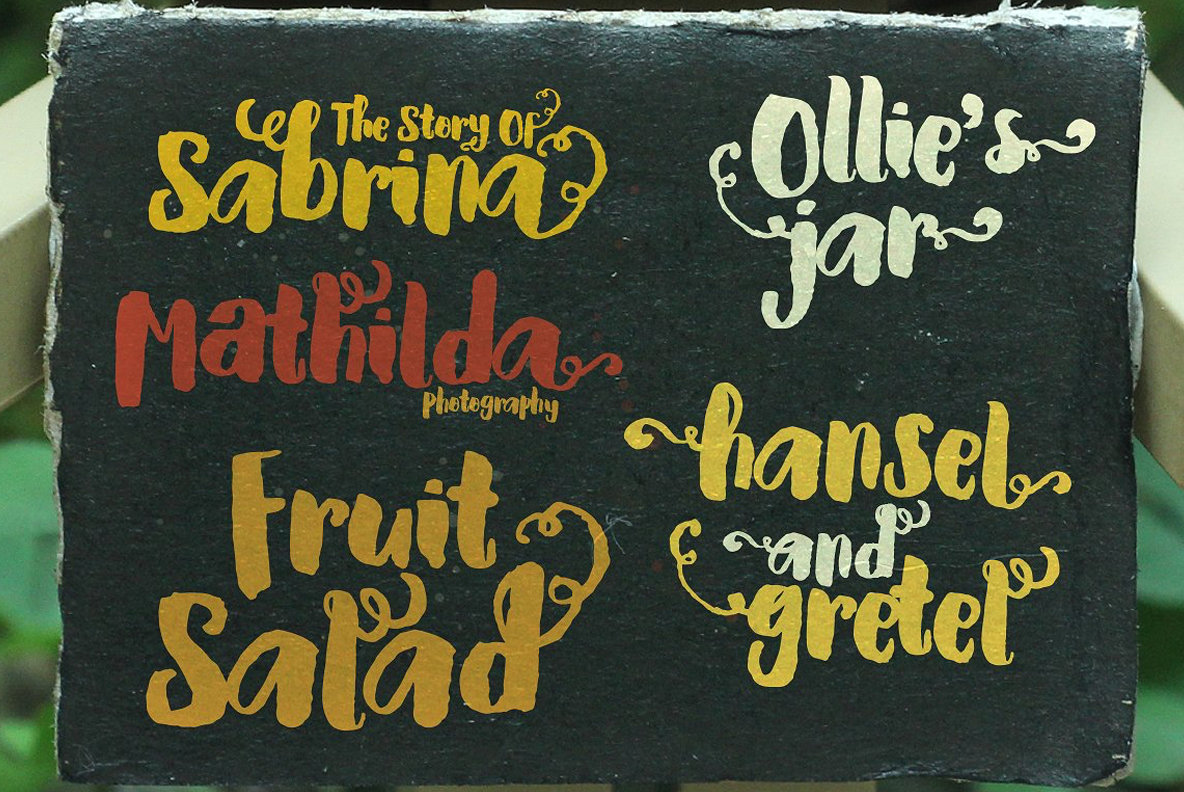 The Story Of
Sabrina
Mathilda
Photography
Fruit
Salad
Ollie's
jar
hansel
and
gretel